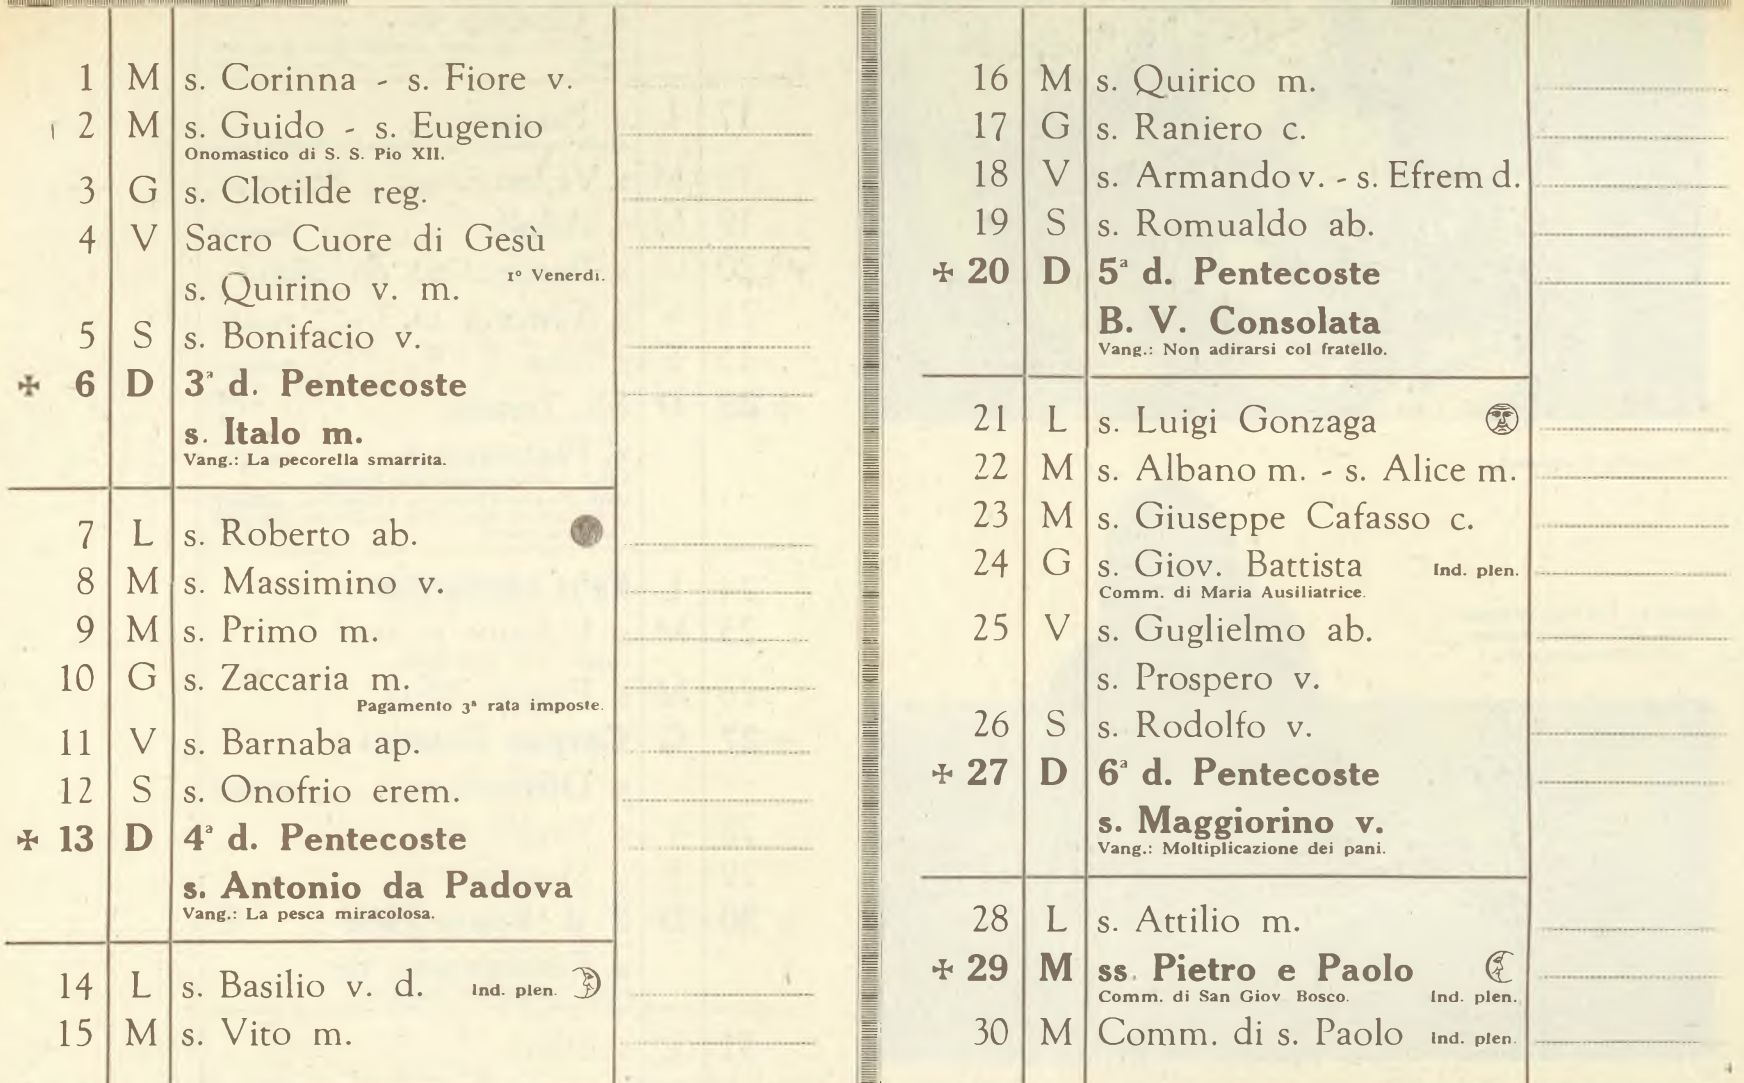 1 M s. Corinna - s. Fiore v.
2 M s. Guido - s. Eugenio
Onomastico di S. S. Pio XII.
3 G s. Clotilde reg.
4 V Sacro Cuore di Gesù
1º Venerdì.
s. Quirino v. m.
5 S s. Bonifacio v.
✠ 6 D 3ª d. Pentecoste
s. Italo m.
Vang.: La pecorella smarrita.
7 L s. Roberto ab.
8 M s. Massimino v.
9 M s. Primo m.
10 G s. Zaccaria m.
Pagamento 3ª rata imposte.
11 V s. Barnaba ap.
12 S s. Onofrio erem.
✠ 13 D 4ª d. Pentecoste
s. Antonio da Padova
Vang.: La pesca miracolosa.
14 L s. Basilio v. d. Ind. plen.
15 M s. Vito m.
16 M s. Quirico m.
17 G s. Raniero c.
18 V s. Armando v. - s. Efrem d.
19 S s. Romualdo ab.
✠ 20 D 5ª d. Pentecoste
B. V. Consolata
Vang.: Non adirarsi col fratello.
21 L s. Luigi Gonzaga
22 M s. Albano m. - s. Alice m.
23 M s. Giuseppe Cafasso c.
24 G s. Giov. Battista Ind. plen.
Comm. di Maria Ausiliatrice.
25 V s. Guglielmo ab.
s. Prospero v.
26 S s. Rodolfo v.
✠ 27 D 6ª d. Pentecoste
s. Maggiorino v.
Vang.: Moltiplicazione dei pani.
28 L s. Attilio m.
✠ 29 M ss. Pietro e Paolo
Comm. di San Giov Bosco. Ind. plen.
30 M Comm. di s. Paolo Ind. plen.